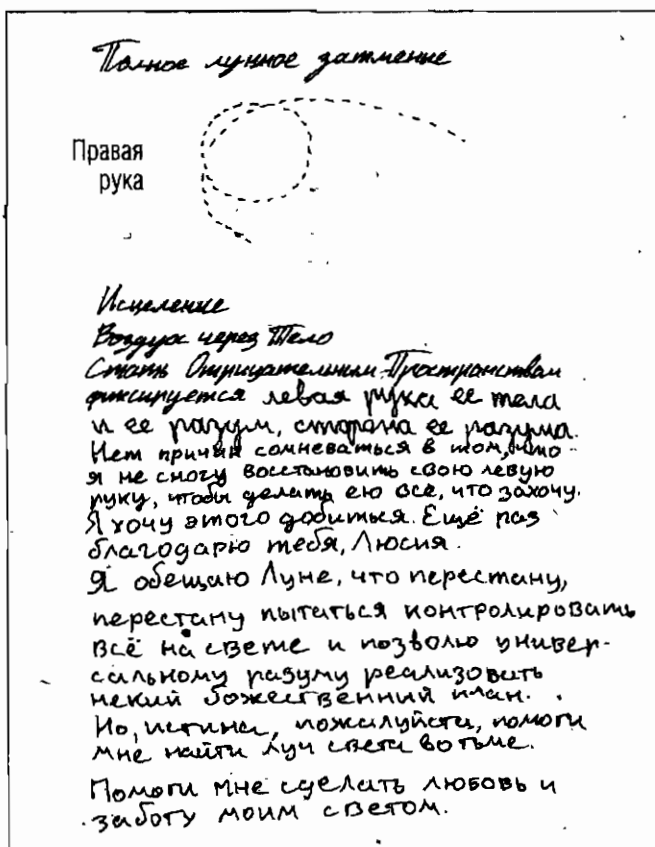 Полное лунное затмение
Правая
рука
Исцеление
Воздух через Тело
Стать Отрицательным Пространством
фиксируется левая рука ее тела
и ее разум, сторона ее разума.
Нет причин сомневаться в том, что
я не смогу восстановить свою левую
руку, чтобы делать ею все, что захочу.
Я хочу этого добиться. Ещё раз
благодарю тебя, Люсия.
Я обещаю Луне, что перестану,
перестану пытаться контролировать
всё на свете и позволю универ-
сальному разуму реализовать
некий божественный план.
Но, истина, пожалуйста, помоги
мне найти луч света во тьме.
Помоги мне сделать любовь и
заботу моим светом.